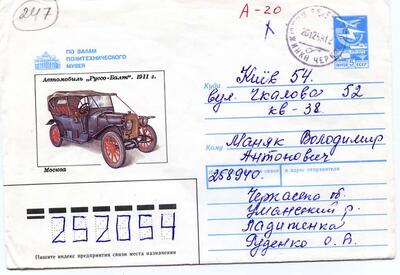 247
А-20
ПО ЗАЛАМ
ПОЛИТЕХНИЧЕСКОГО
МУЗЕЯ
Автомобиль „Руссо-Балт“. 1911 г.
Москва
5
СССР
Куда Київ 54.
вул. Чкалова 52
кв-38.
Кому Маняк Володимир
Антонович
и адрес отправителя
258940.
Черкаська об
Уманский р.
Ладиженка
Гуденко О. А.
252054
Пишите индекс предприятия связи места назначения